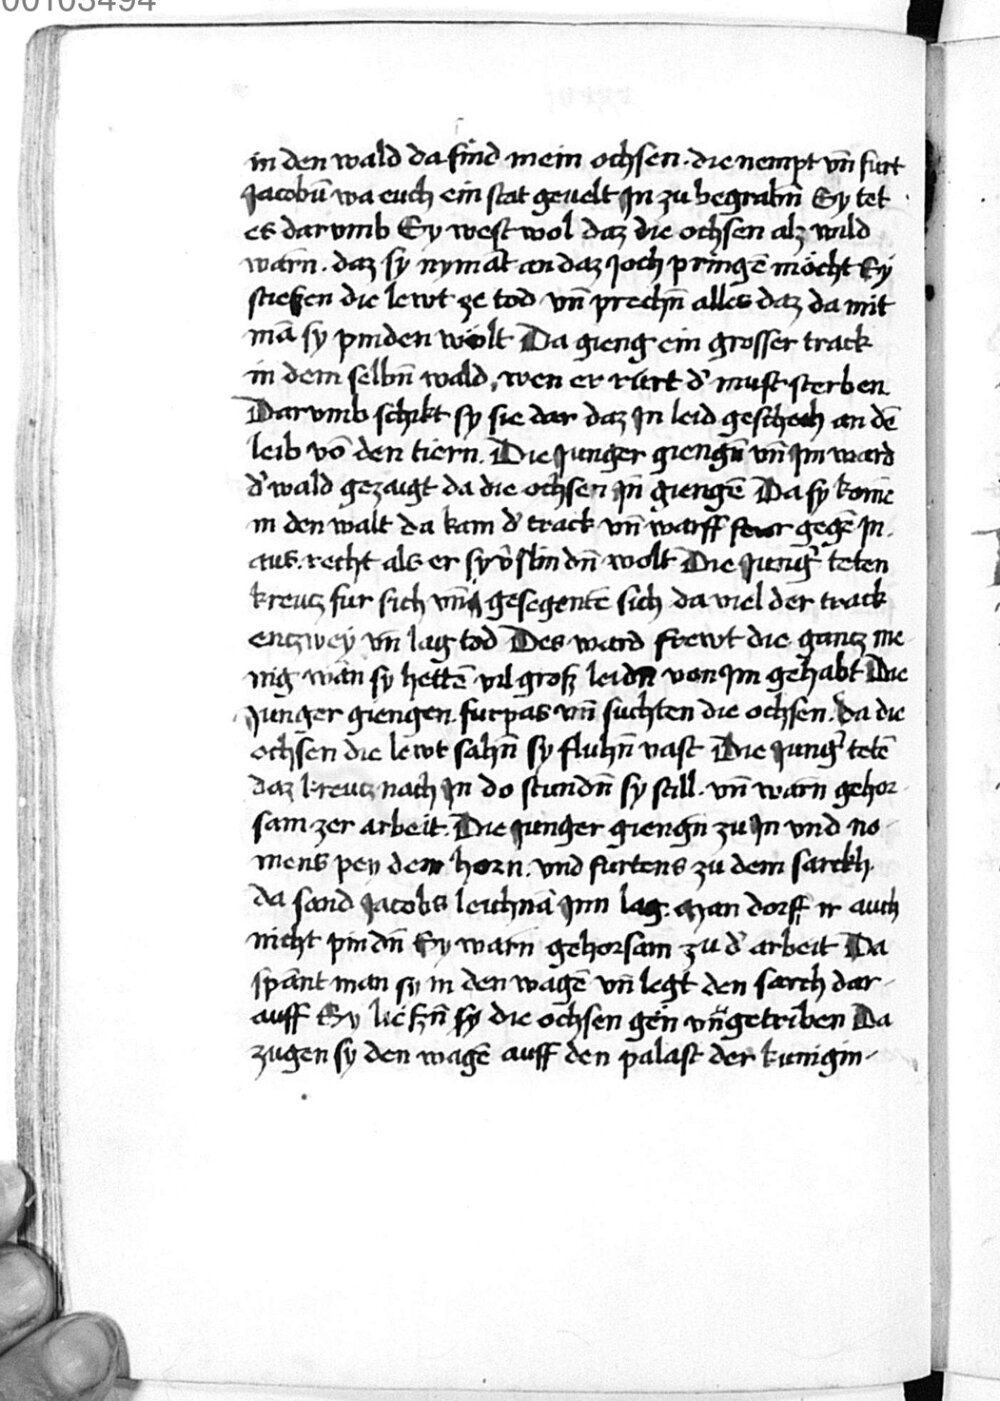 00103494
in den wald da sind mein ochsen. die nempt vn̄ furt
Jacobū wa euch ein stat geuelt Jn zu begrabn̄ Sy tet
es darvmb Sy west wol daz die ochsen alz wild
warn. daz sy nymāt an daz Joch pringē möcht Sy
stieszen die lewt ze tod vn̄ prechn̄ alles daz da mit
mā sy pinden wolt Da gieng ein grosser track
in dem selbn̄ wald, wen er rürt d' must sterben.
Darvmb schikt sy sie dar daz Jn leid geschech an dē
leib vō den tiern. Die Junger giengn̄ vn̄ Jm ward
d' wald gezaigt da die ochsen Jn giengē Da sy komē
in den walt da kam d' track vn̄ warff fewr gegē Jn.
aus. recht als er sy v'slindn̄ wolt Die Jung' teten
kreutz fur sich vn̄ gesegentē sich da viel der track
entzwey vn̄ lag tod Des ward frewt die gantz me
nig wān sy hettē vil grosz leidn von Jm gehabt Die
Junger giengen. furpas vn̄ suchten die ochsen. Da die
ochsen die lewt sahn̄ sy fluhn̄ vast Die Jung' tetē
daz kreutz nach Jn do stundn̄ sy still. vn̄ warn gehor
sam zer arbeit. Die Junger giengn zu Jn vnd no
mens pey dem horn. vnd furtens zu dem sarckh.
da sand Jacobs leichnā Jnn lag. Man dorff ir auch
nicht pindn̄ Sy warn gehorsam zu d' arbeit Da
spānt man sy in den wagē vn̄ legt den sarch dar
auff Sy lieszn̄ sy die ochsen gen vn̄getriben Da
zugen sy den wagē auff den palast der kunigin